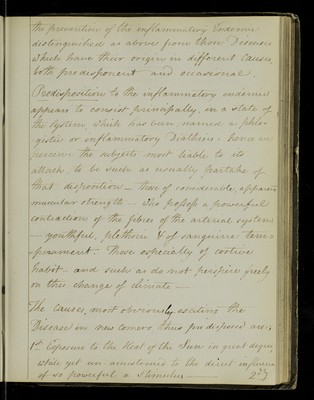 the prevention of the inflammatory Endemic
distinguished as above from those Diseases
which have their origin in different causes,
both predisponent and occasional.
Predisposition to the inflammatory endemic
appears to consist principally, in a state of
the System, which has been named a phlo-
gistic or inflammatory Diathesis – hence we
perceive the subjects most liable to its
attack, to be such as usually partake of
that disposition – those of considerable, apparent
muscular strength – who possess a powerful
contraction of the fibres of the arterial system
– youthful, plethoric & of sanguine tem-
perament: Those especially of costive
habit – and such as do not perspire freely
on this change of climate –
The causes, most obviously exciting the
Disease in new comers thus predisposed are:
1st Exposure to the Heat of the Sun in great degree,
while yet un-accustomed to the direct influence
of so powerful a Stimulus